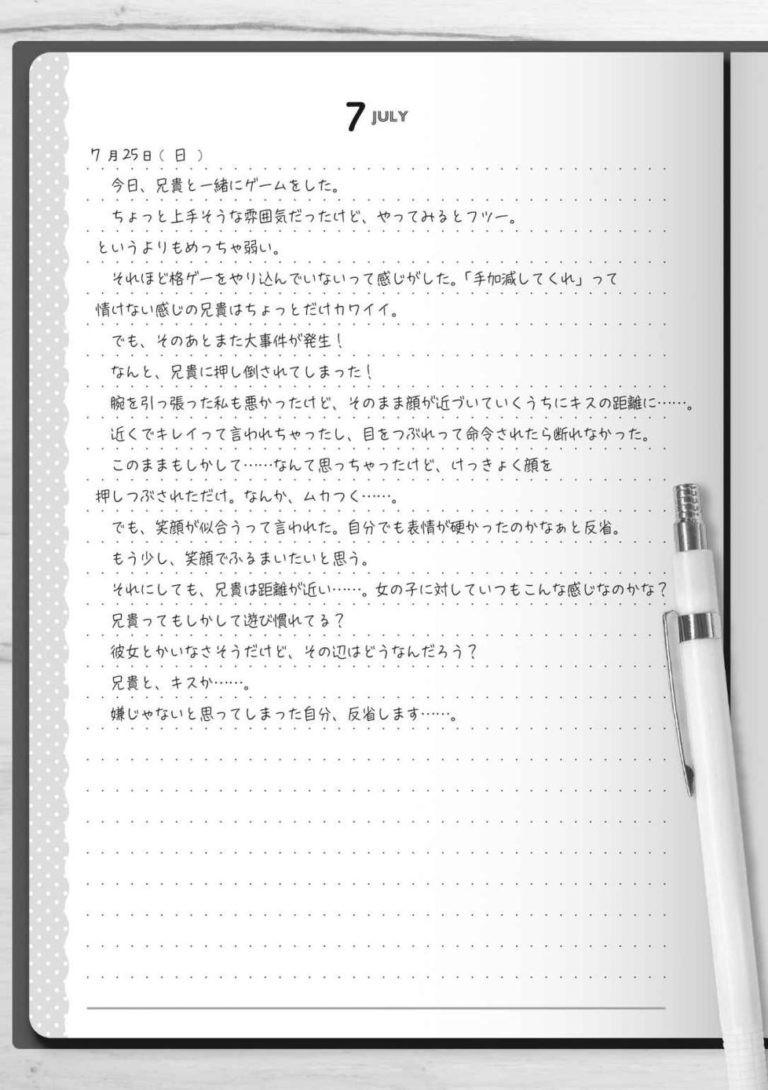 7 JULY
7月25日(日)
今日、兄貴と一緒にゲームをした。
ちょっと上手そうな雰囲気だったけど、やってみるとフツー。
というよりもめっちゃ弱い。
それほど格ゲーをやり込んでいないって感じがした。「手加減してくれ」って
情けない感じの兄貴はちょっとだけカワイイ。
でも、そのあとまた大事件が発生！
なんと、兄貴に押し倒されてしまった！
腕を引っ張った私も悪かったけど、そのまま顔が近づいていくうちにキスの距離に……。
近くでキレイって言われちゃったし、目をつぶれって命令されたら断れなかった。
このままもしかして……なんて思っちゃったけど、けっきょく顔を
押しつぶされただけ。なんか、ムカつく……。
でも、笑顔が似合うって言われた。自分でも表情が硬かったのかなぁと反省。
もう少し、笑顔でふるまいたいと思う。
それにしても、兄貴は距離が近い……。女の子に対していつもこんな感じなのかな？
兄貴ってもしかして遊び慣れてる？
彼女とかいなさそうだけど、その辺はどうなんだろう？
兄貴と、キスか……。
嫌じゃないと思ってしまった自分、反省します……。